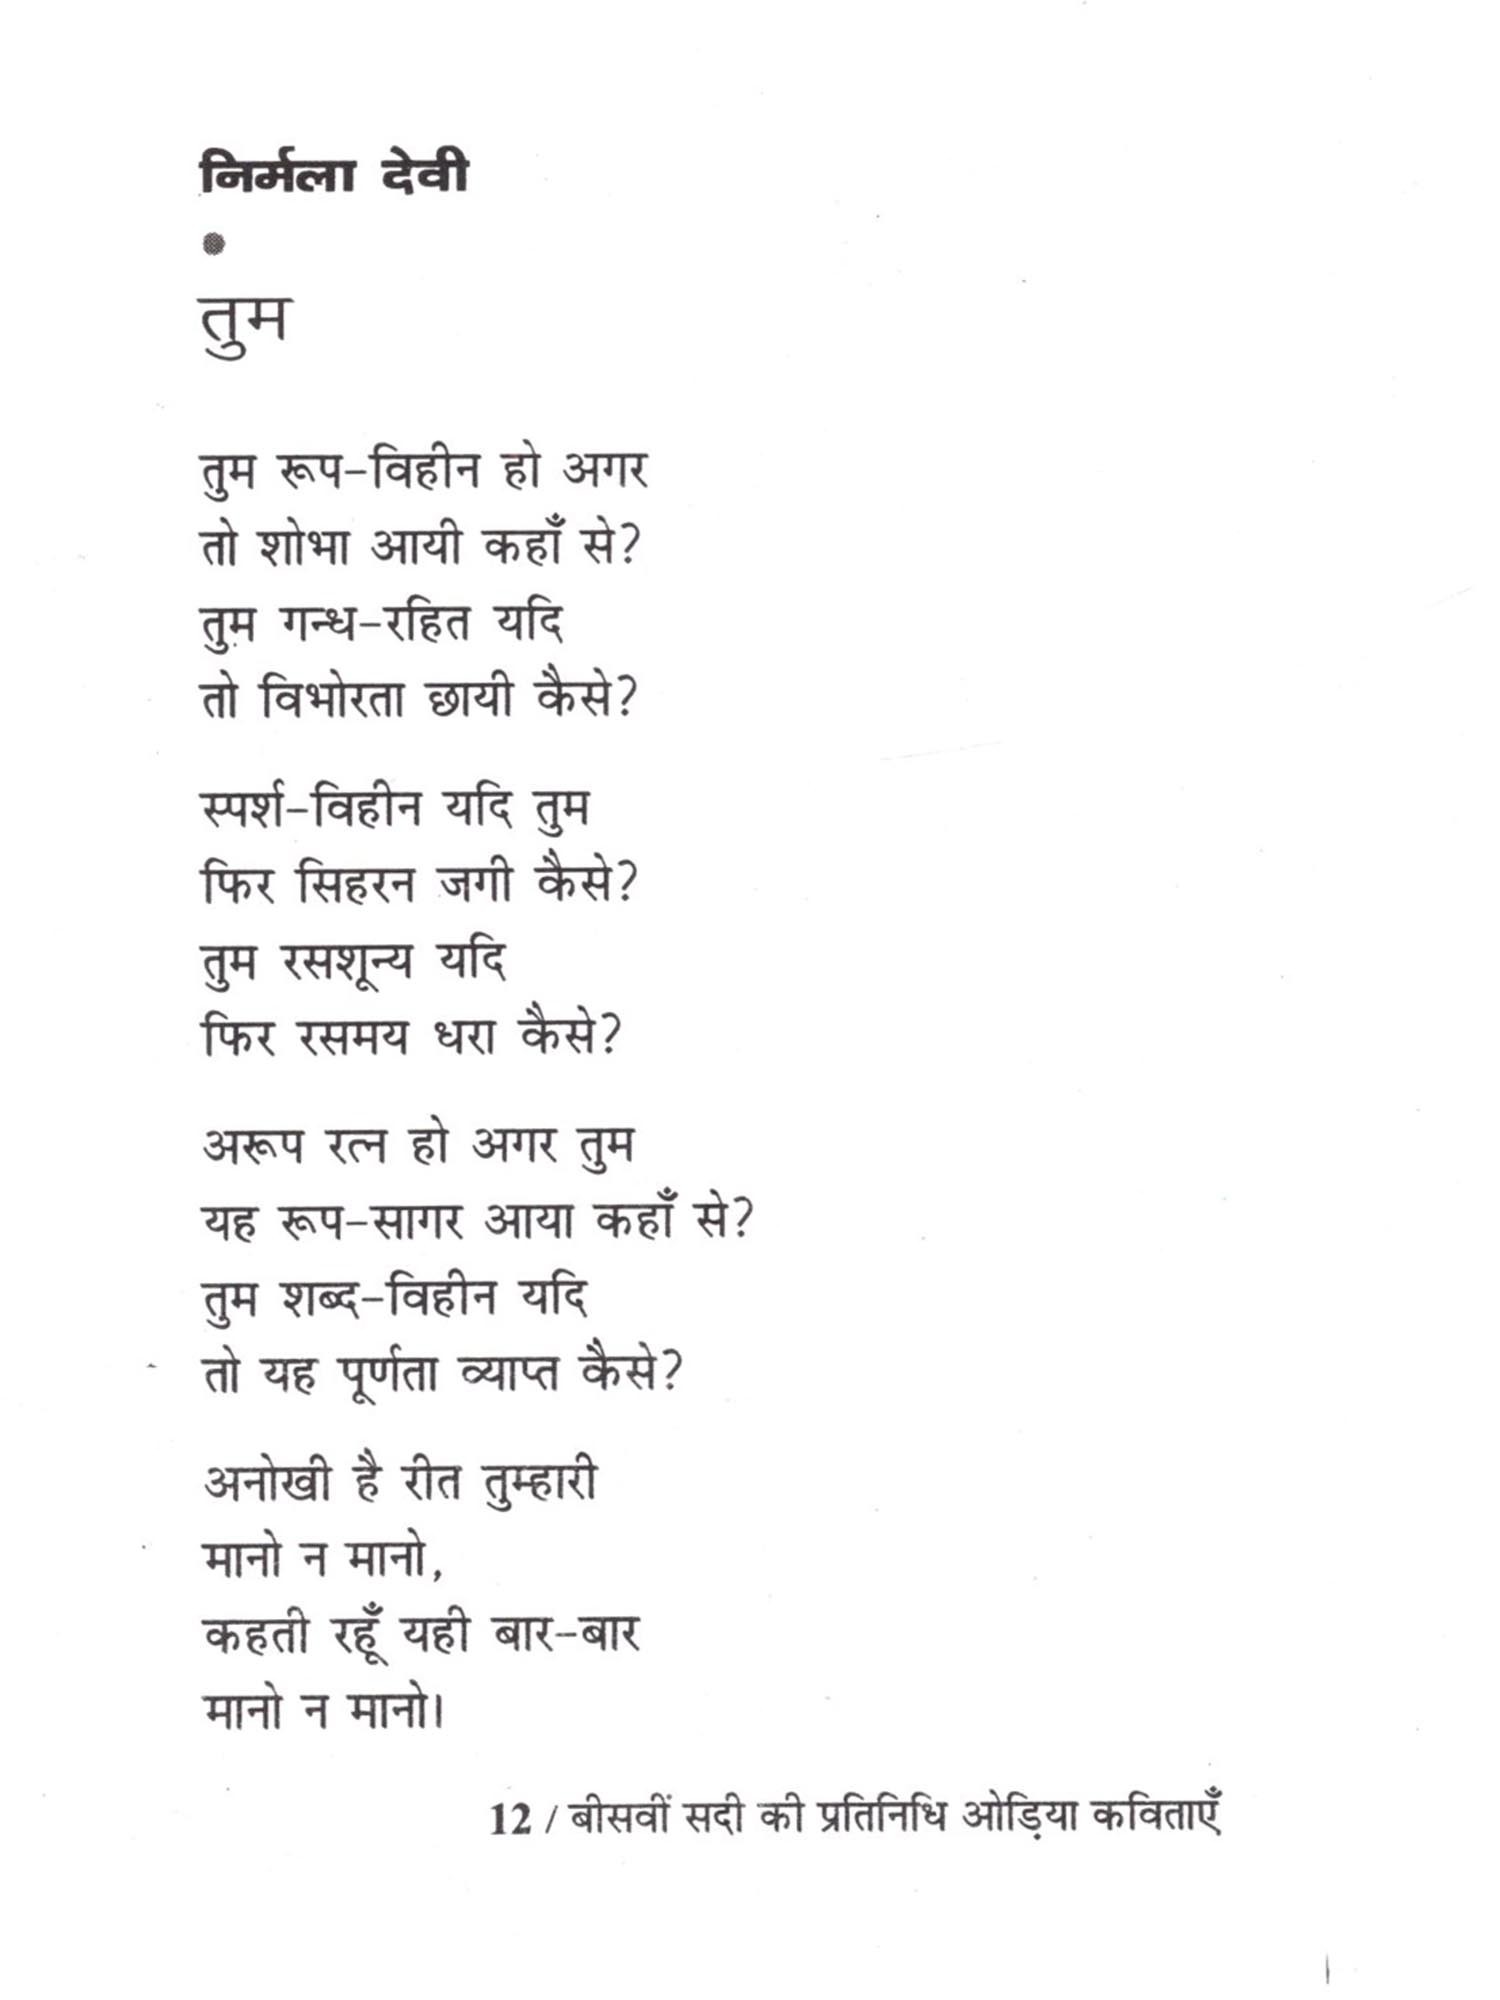 निर्मला देवी
तुम
तुम रूप-विहीन हो अगर
तो शोभा आयी कहाँ से?
तुम गन्ध-रहित यदि
तो विभोरता छायी कैसे?
स्पर्श-विहीन यदि तुम
फिर सिहरन जगी कैसे?
तुम रसशून्य यदि
फिर रसमय धरा कैसे?
अरूप रत्न हो अगर तुम
यह रूप-सागर आया कहाँ से?
तुम शब्द-विहीन यदि
तो यह पूर्णता व्याप्त कैसे?
अनोखी है रीत तुम्हारी
मानो न मानो,
कहती रहूँ यही बार-बार
मानो न मानो।
12 / बीसवीं सदी की प्रतिनिधि ओड़िया कविताएँ